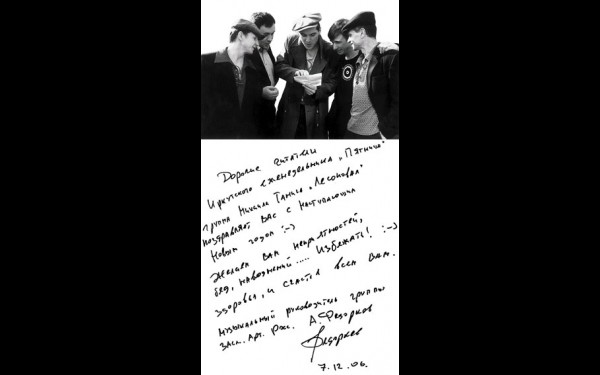 Дорогие читатели
Иркутского еженедельника „Пятница"
группа Михаила Танича „Лесоповал"
поздравляет Вас с наступающим
Новым годом :-)
Желаем Вам неприятностей,
бед, наводнений..... Избежать! :-)
Здоровья, и счастья всем Вам.
Музыкальный руководитель группы
Засл. Арт. Рос. А. Федорков
Федорков
7.12.06.